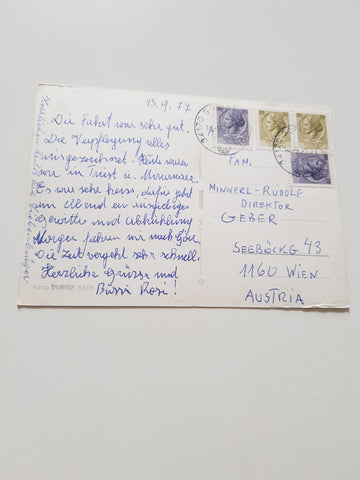 13.9.77
Die Fahrt war sehr gut.
Die Verpflegung alles
ausgezeichnet. Heute waren
wir in Triest u. Miramare.
Es war sehr heiss, dafür jetzt
am Abend ein
Gewitter und Abkühlung
Morgen fahren wir nach Görz.
Die Zeit vergeht sehr schnell.
Herzliche Grüsse und
Bussi Rosi!
FAM.
MINNERL-RUDOLF
DIREKTOR
GEBER
SEEBÖCKG 43
1160 WIEN
AUSTRIA
FOTO 5319